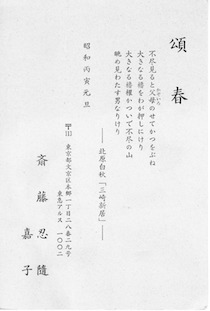 頌春
不尽見ると父母のせてかつをぶね
大きなる櫓をわが押しにけり
大きなる櫓櫂かついで不尽の山
眺め見わたす男なりけり
── 北原白秋「三崎新居」──
昭和丙寅元旦
〒113 東京都文京区本郷一丁目二八番二九号
東急アルス一〇〇二
斎藤忍随
嘉子